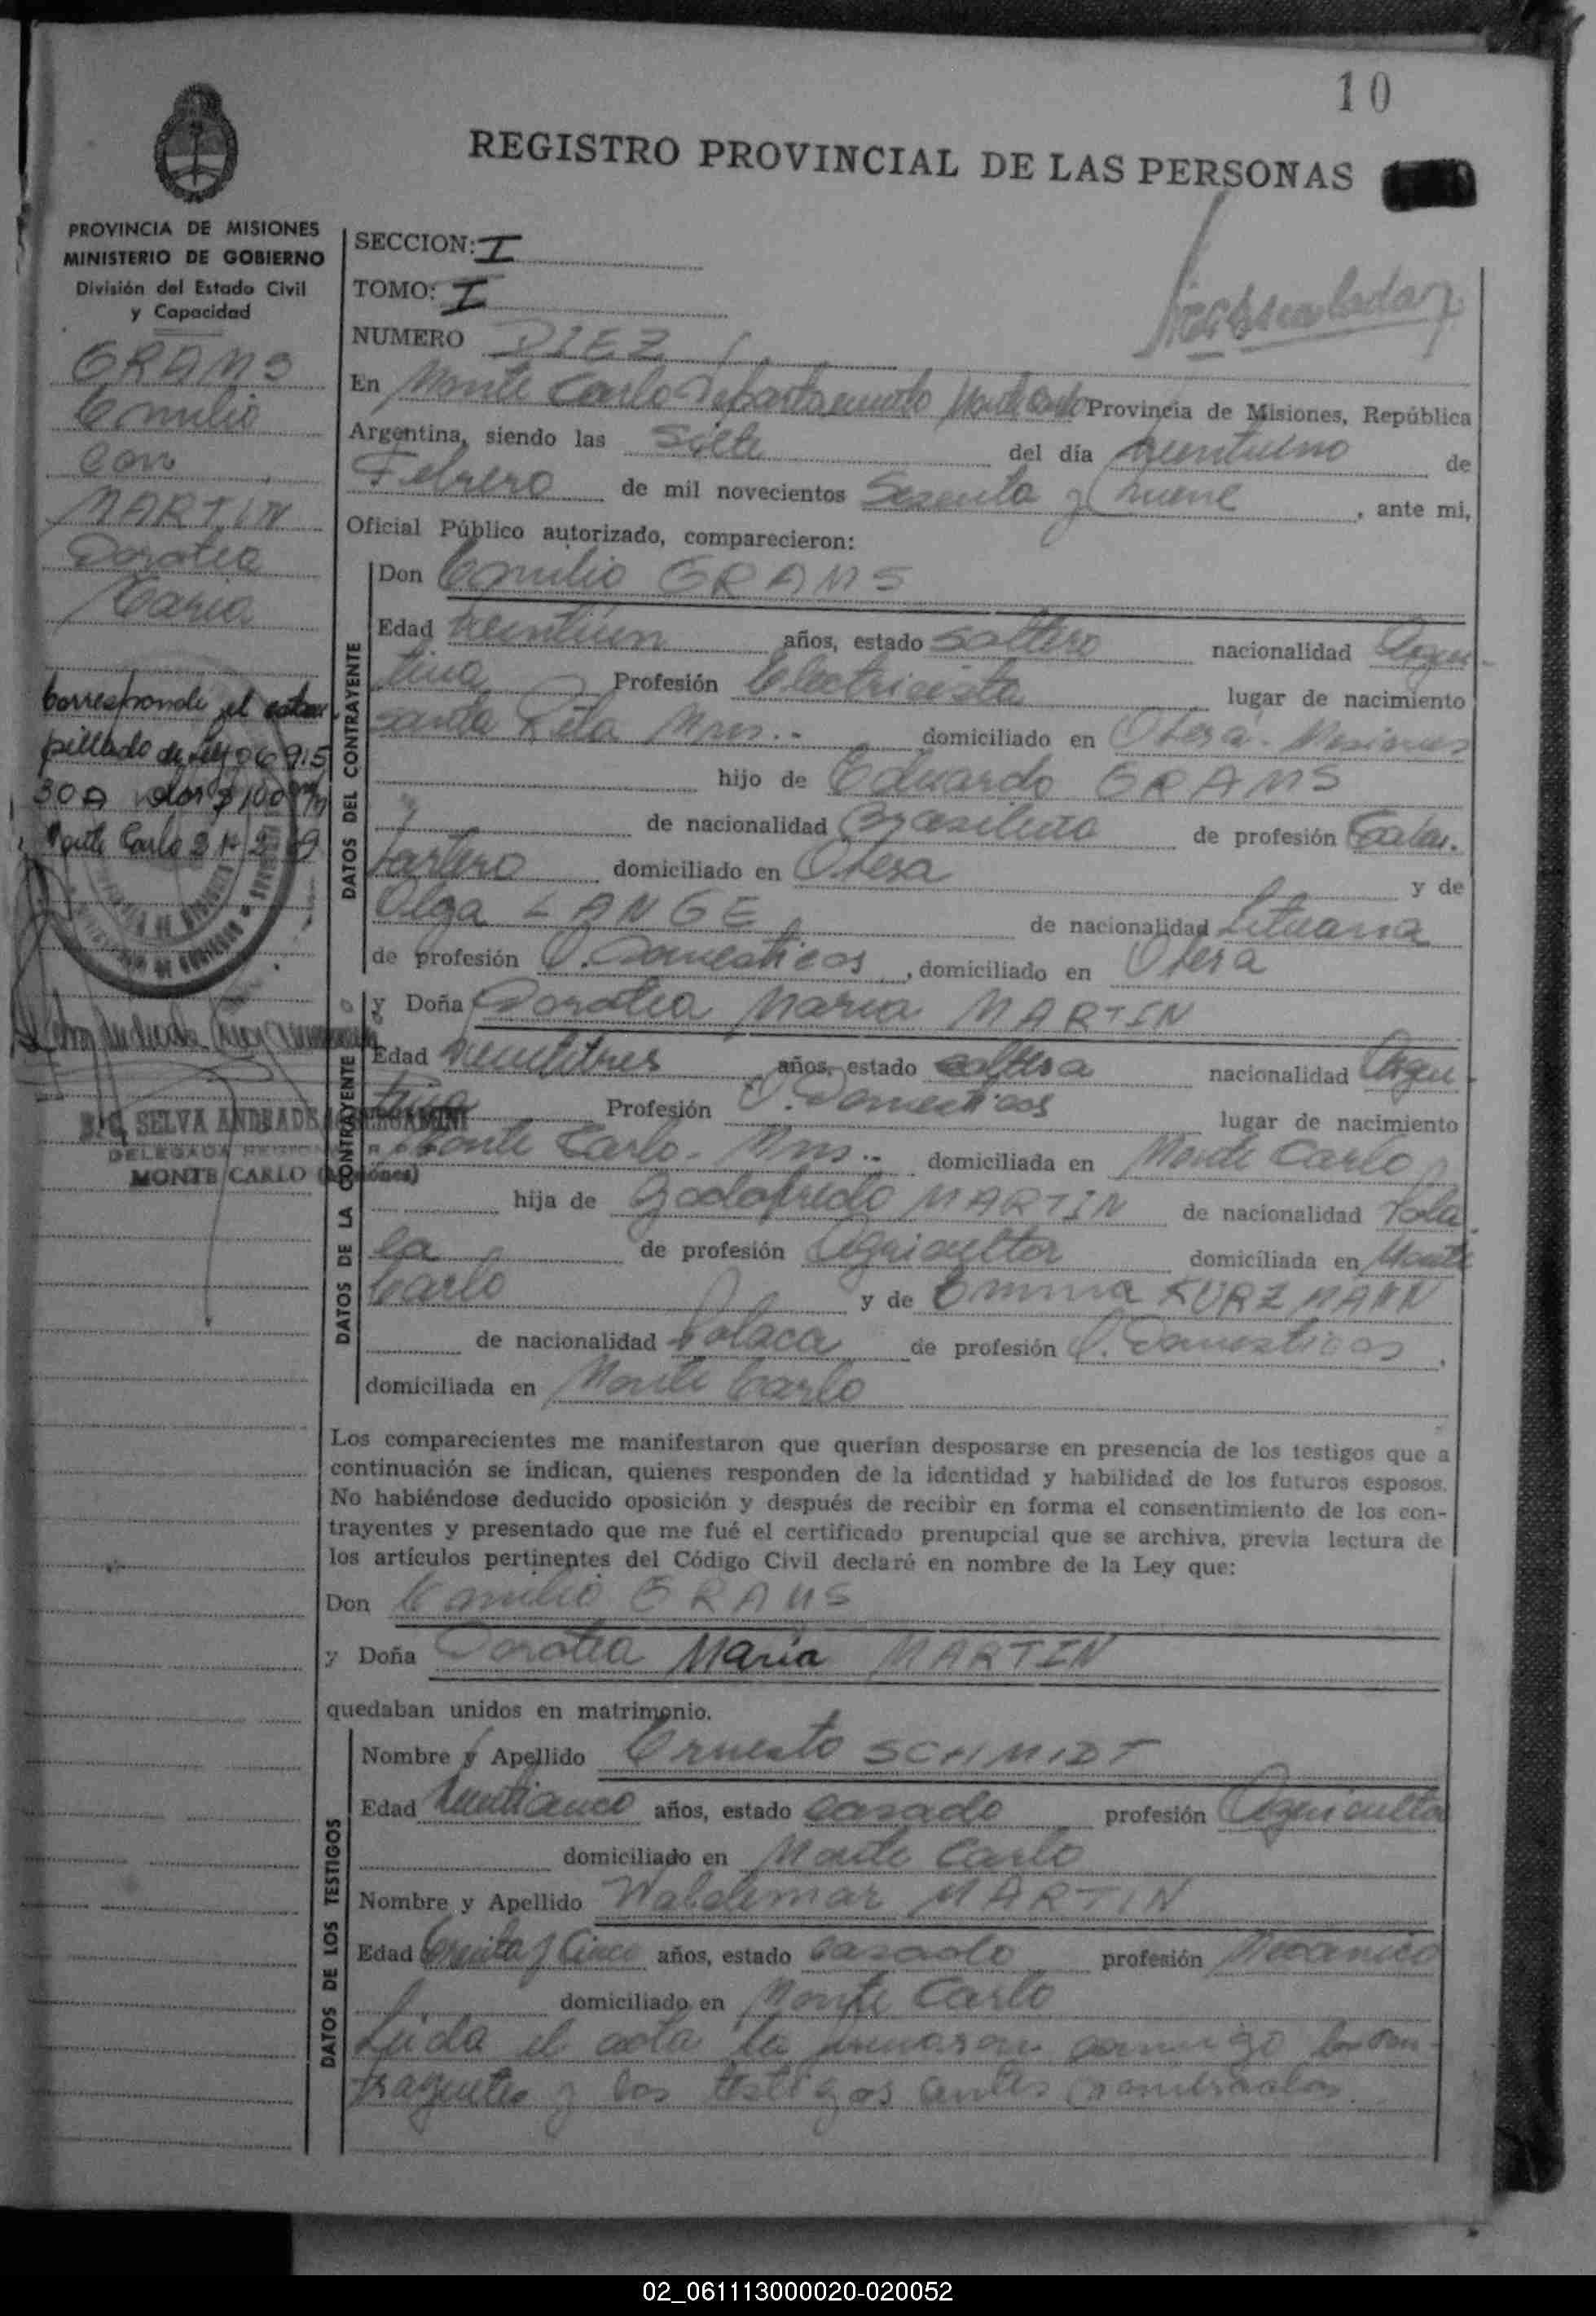 10
REGISTRO PROVINCIAL DE LAS PERSONAS
PROVINCIA DE MISIONES
MINISTERIO DE GOBIERNO
División del Estado Civil
y Capacidad
GRAMS
Emilio
con
MARTIN
Dorotea
Maria
Corresponde el estam
pillado de ley
Monte Carlo
SELVA ANDRADE
DELEGADA
MONTE CARLO (Misiones)
SECCION: I
TOMO: I
NUMERO DIEZ
En Monte Carlo Departamento Monte Carlo Provincia de Misiones, República
Argentina, siendo las siete del día veintiuno de
Febrero de mil novecientos Sesenta y nueve, ante mi,
Oficial Público autorizado, comparecieron:
DATOS DEL CONTRAYENTE
Don Emilio GRAMS
Edad veintiun años, estado soltero nacionalidad Argen-
tina Profesión Electricista lugar de nacimiento
santa Rita Mns.. domiciliado en Oberá. Misiones
hijo de Eduardo GRAMS
de nacionalidad Brasileña de profesión
domiciliado en Obera y de
Olga LANGE de nacionalidad Lituana
de profesión Q. Domesticos, domiciliado en Obera
DATOS DE LA CONTRAYENTE
y Doña Dorotea Maria MARTIN
Edad veintitres años, estado soltera nacionalidad Argen-
tina Profesión Q. Domesticos lugar de nacimiento
Monte Carlo. Mns.. domiciliada en Monte Carlo
hija de Godofredo MARTIN de nacionalidad Pola
ca de profesión Agricultor domiciliada en Monte
Carlo y de Emma KURZMANN
de nacionalidad Polaca de profesión Q. Domesticos,
domiciliada en Monte Carlo
Los comparecientes me manifestaron que querían desposarse en presencia de los testigos que a
continuación se indican, quienes responden de la identidad y habilidad de los futuros esposos.
No habiéndose deducido oposición y después de recibir en forma el consentimiento de los con-
trayentes y presentado que me fué el certificado prenupcial que se archiva, previa lectura de
los artículos pertinentes del Código Civil declaré en nombre de la Ley que:
Don Emilio GRAMS
y Doña Dorotea Maria MARTIN
quedaban unidos en matrimonio.
DATOS DE LOS TESTIGOS
Nombre y Apellido Ernesto SCHMIDT
Edad años, estado casado profesión Agricultor
domiciliado en Monte Carlo
Nombre y Apellido Waldemar MARTIN
Edad treinta y Cinco años, estado casado profesión Mecanico
domiciliado en Monte Carlo
Leida el acta la firmaron conmigo los con-
trayentes y los testigos antes nombrados.
02_061113000020-020052